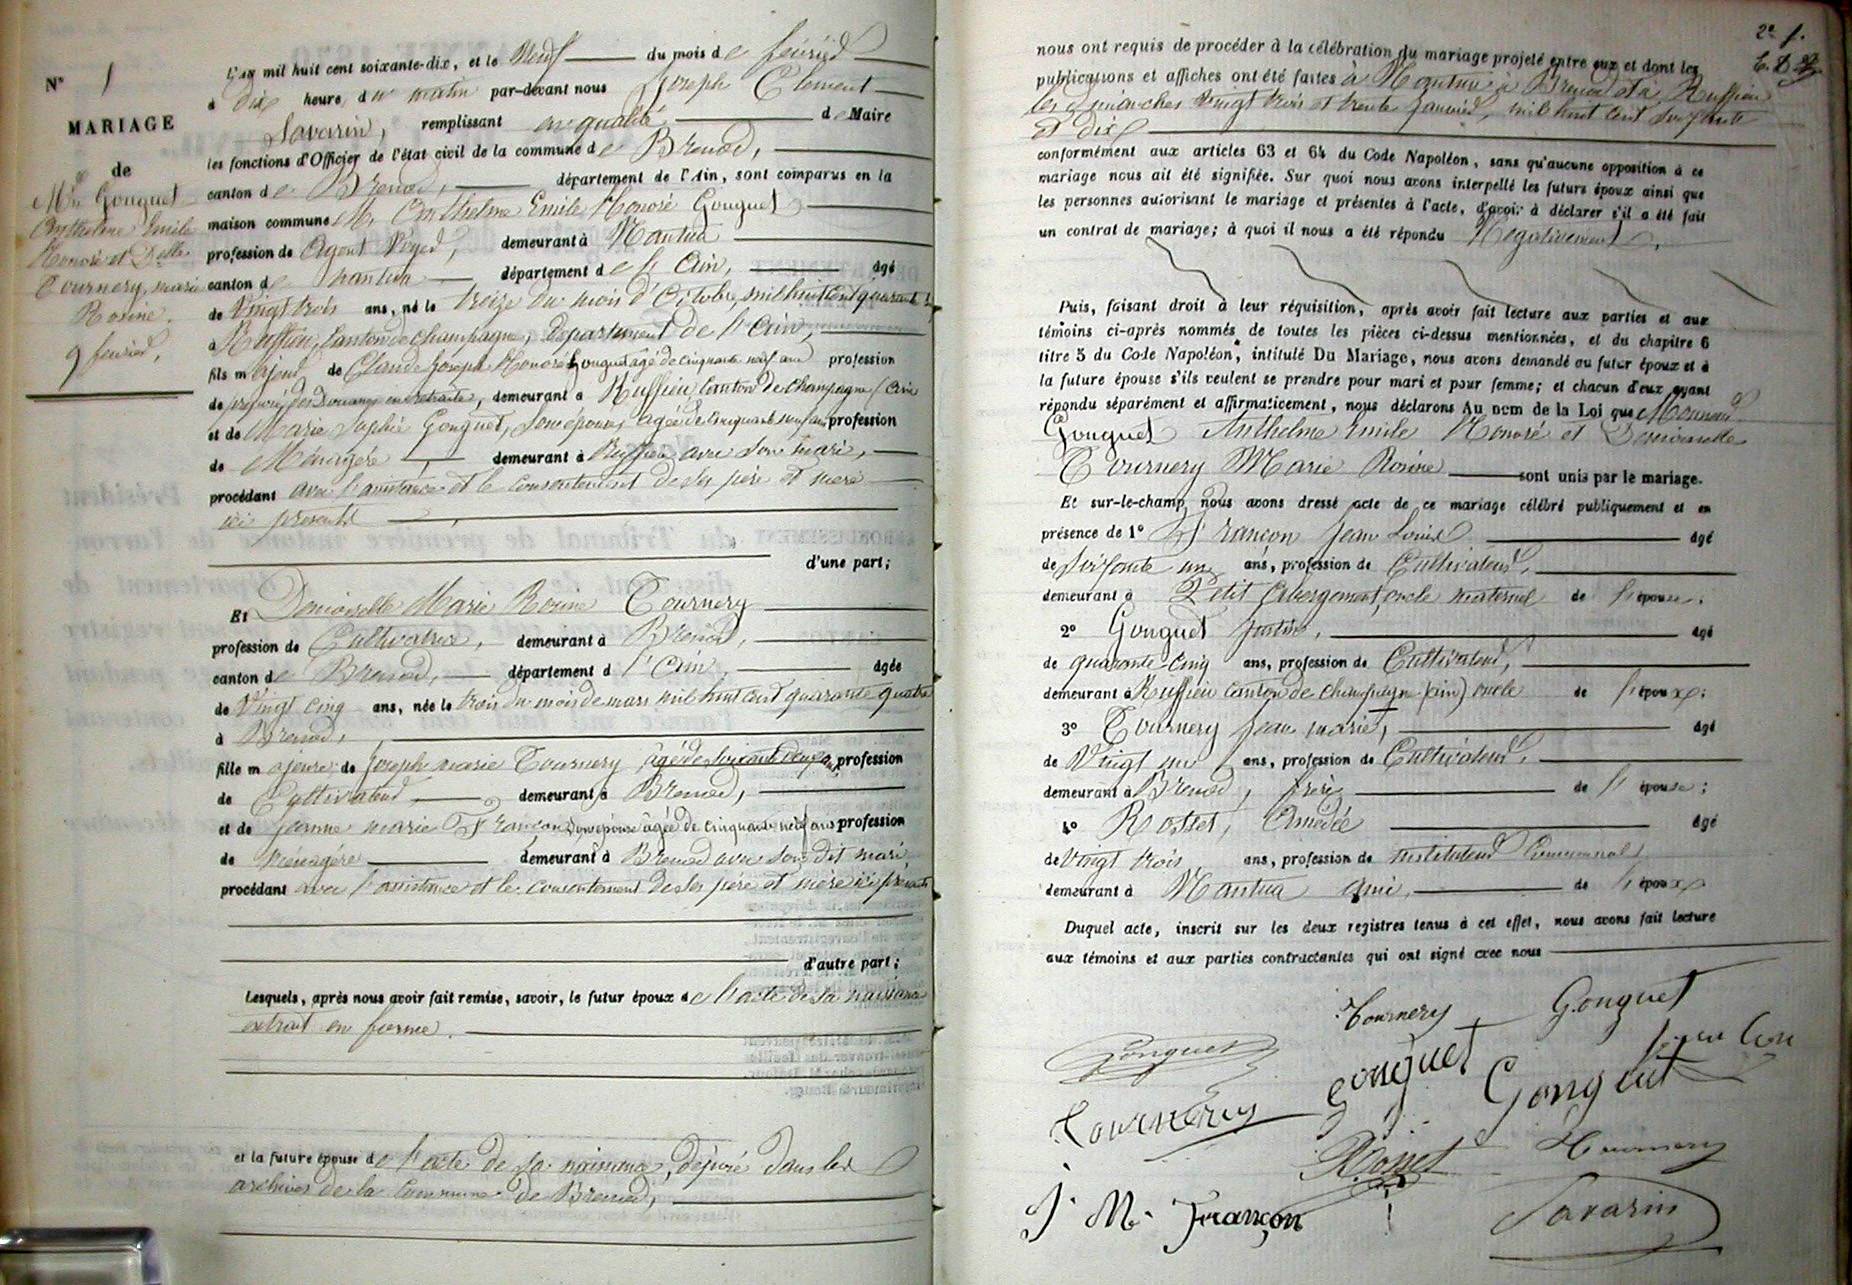 N° 1
MARIAGE
de
Mr Gonguet
Anthelme Emile
Honoré et Delle
Tournery, marie
Rosine.
9 février,
L'an mil huit cent soixante-dix, et le Neuf du mois de février
à dix heures du matin par-devant nous Joseph Clément
Savarin, remplissant en qualité de Maire
les fonctions d'Officier de l'état civil de la commune de Brénod,
canton de Brénod, département de l'Ain, sont comparus en la
maison commune Mr Anthelme Emile Honoré Gonguet
profession de Agent Voyer, demeurant à Nantua
canton de Nantua département de l'Ain, âgé
de Vingt trois ans, né le treize du mois d'Octobre mil huit cent quarante
à Ruffieu, Canton de Champagne, département de l'Ain,
fils majeur de Claude Joseph Honoré Gonguet agé de cinquante neuf ans profession
de préposé des Douanes en retraite, demeurant à Ruffieu Canton de Champagne (Ain
et de Marie Sophie Gonguet, son épouse, agée de cinquante neuf ans profession
de Ménagère, demeurant à Ruffieu avec son mari,
procédant avec l'assistance et le consentement de ses père et mère
ici présents
d'une part;
Et Demoiselle Marie Rosine Tournery
profession de Cultivatrice, demeurant à Brénod,
canton de Brénod, département d l'Ain, âgée
de Vingt cinq ans, née le trois du mois de mars mil huit cent quarante quatre
à Brénod,
fille majeure de Joseph marie Tournery, âgé de soixante deux ans, profession
de Cultivateur demeurant à Brénod,
et de Jeanne marie Françon, son épouse âgée de cinquante neuf ans profession
de ménagère demeurant à Brénod avec son dit mari,
procédant avec l'assistance et le consentement de ses père et mère ici présents
d'autre part;
Lesquels, après nous avoir fait remise, savoir, le futur époux de l'acte de sa naissance
extrait en forme.
et la future épouse de l'acte de sa naissance, déposé dans les
archives de la Commune de Brénod,
2e f.
nous ont requis de procéder à la célébration du mariage projeté entre eux et dont les
publications et affiches ont été faites à Nantua à Brénod et à Ruffieu
les Dimanches Vingt trois et trente Janvier, mil huit cent soixante
et dix
conformément aux articles 63 et 64 du Code Napoléon, sans qu'aucune opposition à ce
mariage nous ait été signifiée. Sur quoi nous avons interpellé les futurs époux ainsi que
les personnes autorisant le mariage et présentes à l'acte, d'avoir à déclarer s'il a été fait
un contrat de mariage; à quoi il nous a été répondu Négativement,
Puis, faisant droit à leur réquisition, après avoir fait lecture aux parties et aux
témoins ci-après nommés de toutes les pièces ci-dessus mentionnées, et du chapitre 6
titre 5 du Code Napoléon, intitulé Du Mariage, nous avons demandé au futur époux et à
la future épouse s'ils veulent se prendre pour mari et pour femme; et chacun d'eux ayant
répondu séparément et affirmativement, nous déclarons Au nom de la Loi que Monsieur
Gonguet Anthelme Emile Honoré et Demoiselle
Tournery Marie Rosine sont unis par le mariage.
Et sur-le-champ nous avons dressé acte de ce mariage célébré publiquement et en
présence de 1° Françon Jean Louis âgé
de Soixante un ans, profession de Cultivateur,
demeurant à Petit Abergement, oncle maternel de l'épouse;
2° Gonguet Justin, âgé
de quarante-cinq ans, profession de Cultivateur,
demeurant à Ruffieu canton de Champagne (ain) oncle de l'époux;
3° Tournery Jean marie, âgé
de Vingt un ans, profession de Cultivateur,
demeurant à Brénod, frère de l'épouse;
4° Rosset, Amédée âgé
de Vingt trois ans, profession de instituteur Communal,
demeurant à Nantua ami, de l'époux
Duquel acte, inscrit sur les deux registres tenus à cet effet, nous avons fait lecture
aux témoins et aux parties contractantes qui ont signé avec nous
Tournery Gonguet
Gonguet Gonguet
Gonguet
Tournery
Rosset Tournery
J. M. Françon Savarin